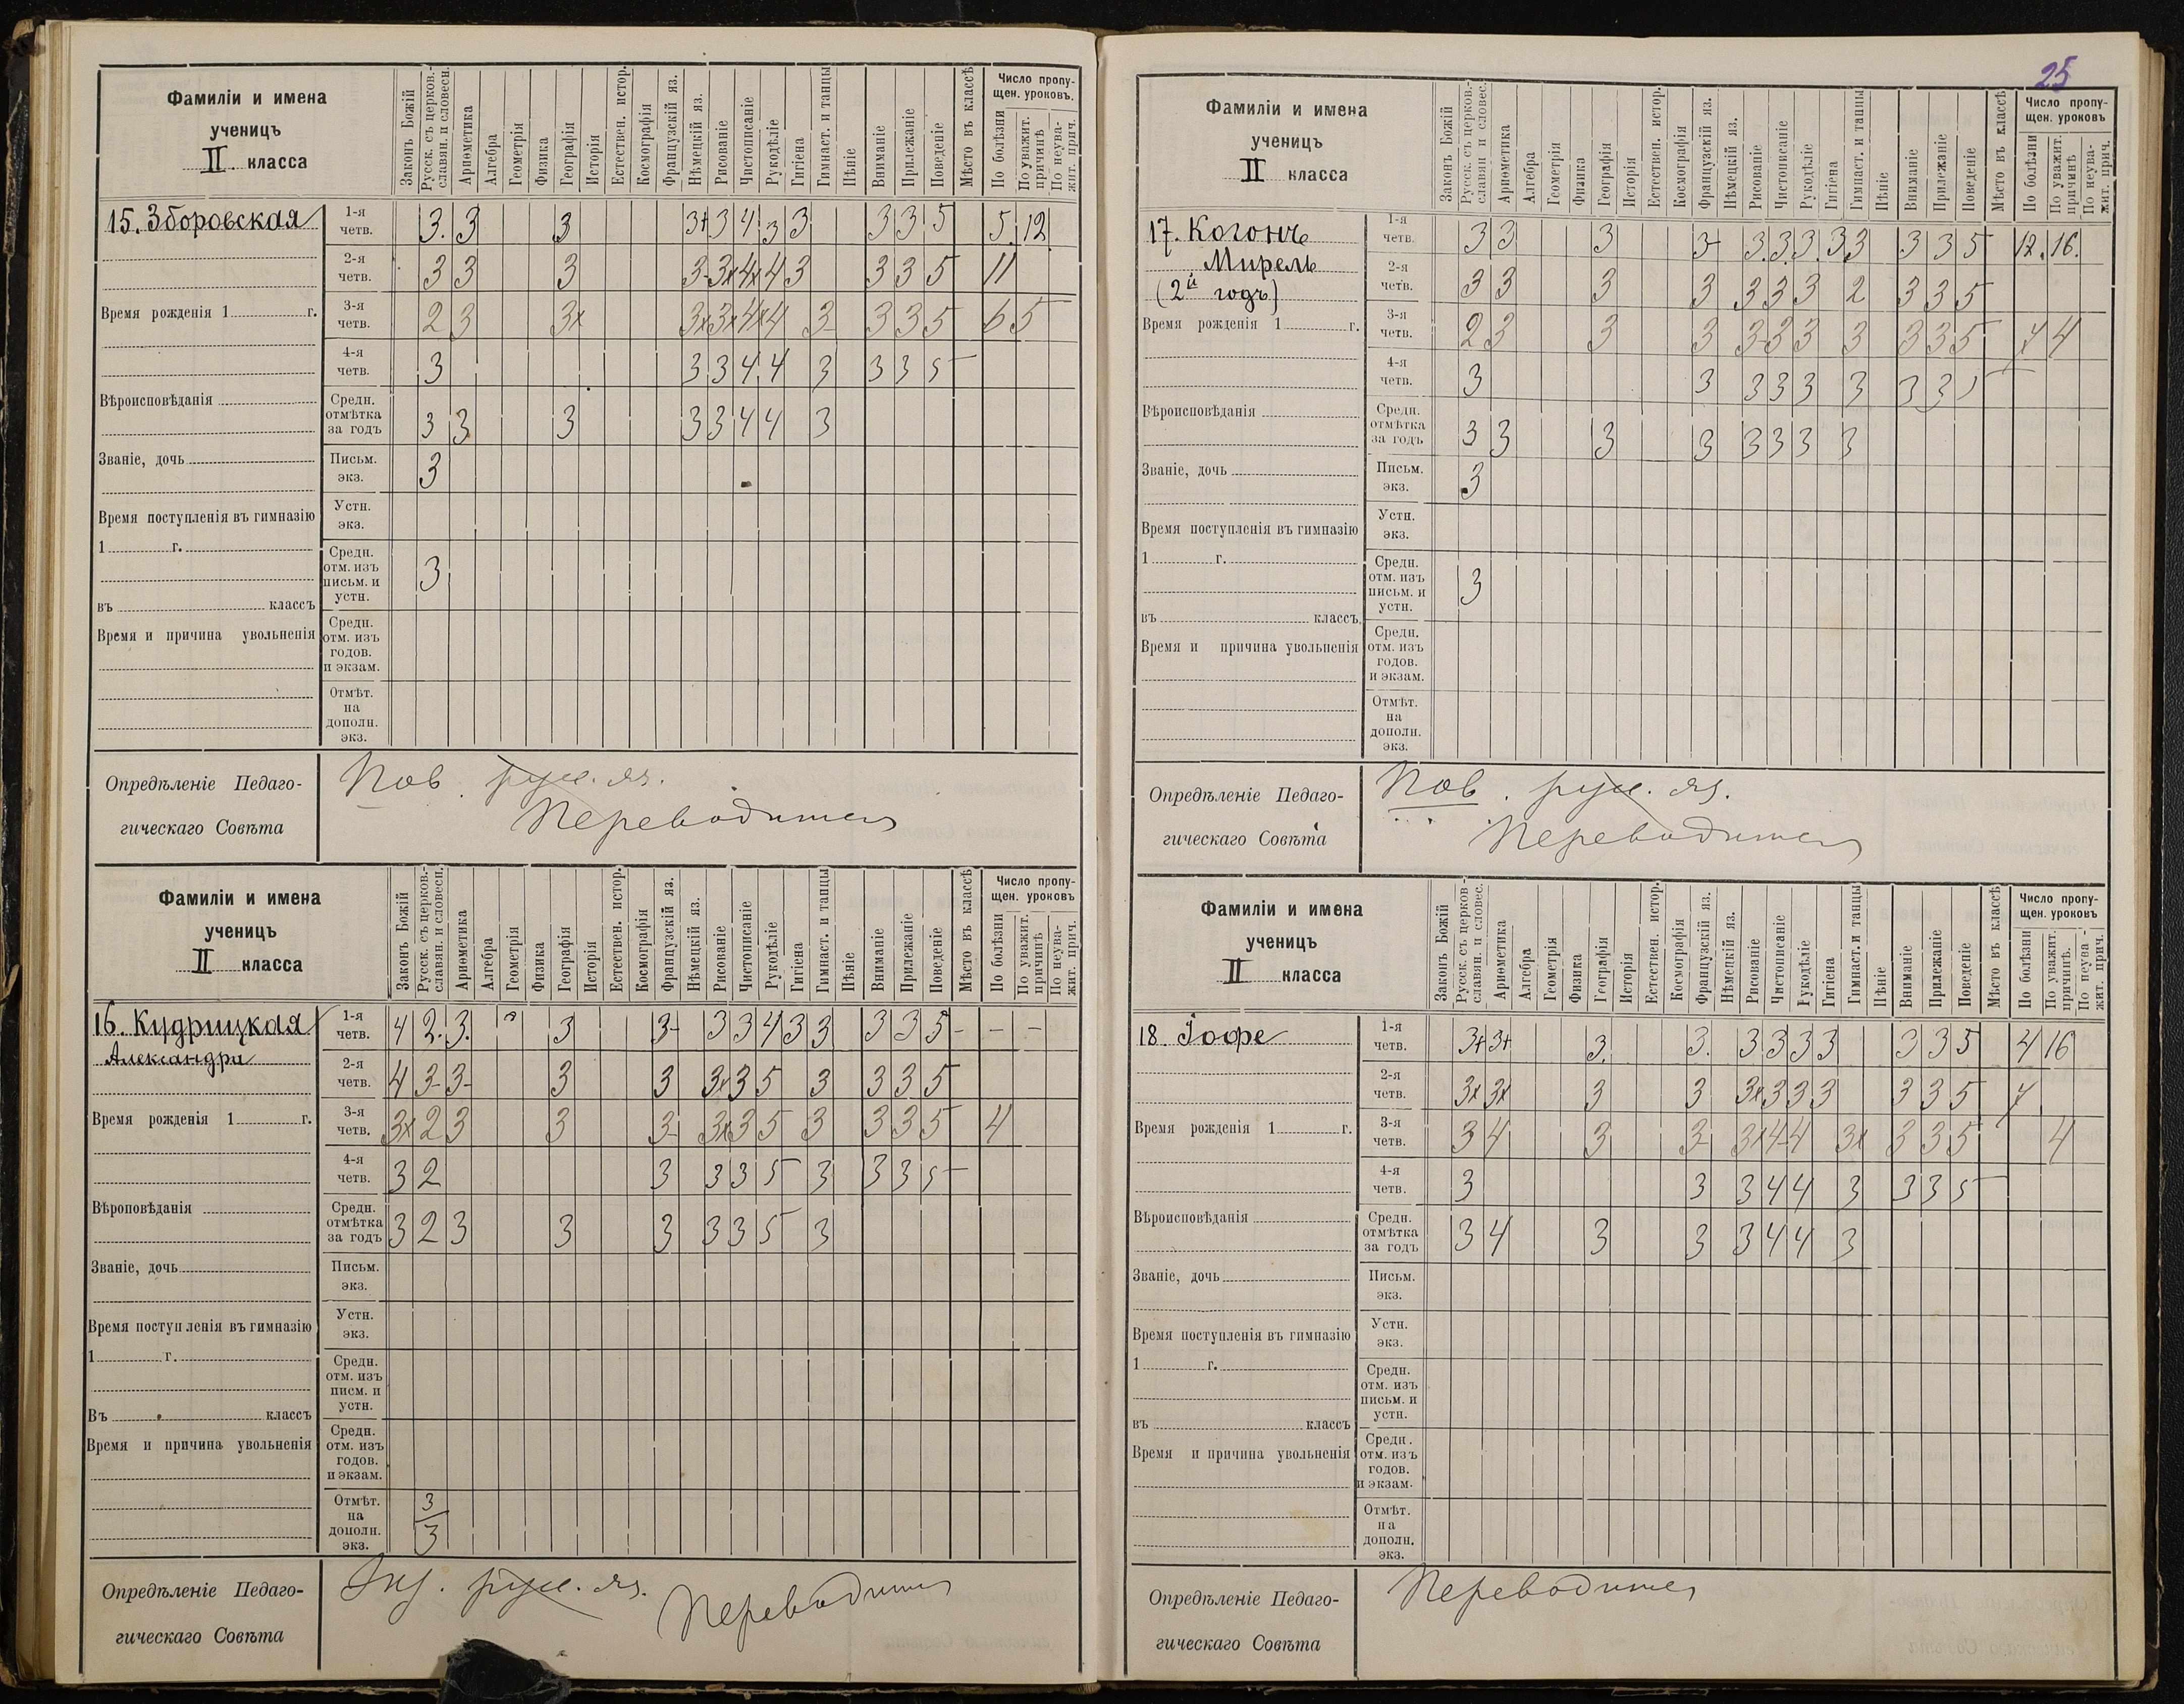 25
Фамиліи и имена
ученицъ
II класса
Законъ Божій
Русск. съ церков.-славян. и словесн.
Ариѳметика
Алгебра
Геометрія
Физика
Географія
Исторія
Естествен. истор.
Космографія
Французскій яз.
Нѣмецкій яз.
Рисованіе
Чистописаніе
Рукодѣліе
Гигіена
Гимнаст. и танцы
Пѣніе
Вниманіе
Прилежаніе
Поведеніе
Мѣсто въ классѣ
Число пропущен. уроковъ.
По болѣзни
По уважит. причинѣ
По неуважит. прич.
15. Зборовская
1-я четв. 3. 3 3 3+ 3 4 3 3 3 3 5 5 12
2-я четв. 3 3 3 3- 3x 4x 4 3 3 3 5 11
Время рожденія 1 г.
3-я четв. 2 3 3x 3x 3x 4x 4 3- 3 3 5 6 5
4-я четв. 3 3 3 4 4 3 3 3 5
Вѣроисповѣданія
Средн. отмѣтка за годъ 3 3 3 3 3 4 4 3
Званіе, дочь
Письм. экз. 3
Время поступленія въ гимназію
1 г.
Устн. экз.
Средн. отм. изъ письм. и устн. 3
въ классъ
Время и причина увольненія
Средн. отм. изъ годов. и экзам.
Отмѣт. на дополн. экз.
Опредѣленіе Педаго-
гическаго Совѣта
Пов. русс. яз.
Переводится
Фамиліи и имена
ученицъ
II класса
Законъ Божій
Русск. съ церков.-славян. и словесн.
Ариѳметика
Алгебра
Геометрія
Физика
Географія
Исторія
Естествен. истор.
Космографія
Французскій яз.
Нѣмецкій яз.
Рисованіе
Чистописаніе
Рукодѣліе
Гигіена
Гимнаст. и танцы
Пѣніе
Вниманіе
Прилежаніе
Поведеніе
Мѣсто въ классѣ
Число пропущен. уроковъ
По болѣзни
По уважит. причинѣ
По неуважит. прич.
16. Кудрицкая
Александра
1-я четв. 4 2. 3. 3 3- 3 3 4 3 3 3 3 5 - - -
2-я четв. 4 3- 3- 3 3 3x 3 5 3 3 3 5
Время рожденія 1 г.
3-я четв. 3x 2 3 3 3- 3x 3 5 3 3 3 5 4
4-я четв. 3 2 3 3 3 5 3 3 3 5
Вѣроповѣданія
Средн. отмѣтка за годъ 3 2 3 3 3 3 3 5 3
Званіе, дочь
Письм. экз.
Время поступленія въ гимназію
1 г.
Устн. экз.
Средн. отм. изъ писм. и устн.
Въ классъ
Время и причина увольненія
Средн. отм. изъ годов. и экзам.
Отмѣт. на дополн. экз. 3/3
Опредѣленіе Педаго-
гическаго Совѣта
Экз. русс. яз.
Переводится
Фамиліи и имена
ученицъ
II класса
Законъ Божій
Русск. съ церков.-славян и словес.
Ариѳметика
Алгебра
Геометрія
Физика
Географія
Исторія
Естествен. истор.
Космографія
Французскій яз.
Нѣмецкій яз.
Рисованіе
Чистописаніе
Рукодѣліе
Гигіена
Гимнаст. и танцы
Пѣніе
Вниманіе
Прилежаніе
Поведеніе
Мѣсто въ классѣ
Число пропущен. уроковъ
По болѣзни
По уважит. причинѣ
По неуважит. прич.
17. Когонъ
Мирель
(2й годъ)
1-я четв. 3 3 3 3- 3. 3. 3. 3. 3 3 3 5 12. 16.
2-я четв. 3 3 3 3 3 3 3 2 3 3 5
Время рожденія 1 г.
3-я четв. 2 3 3 3 3- 3 3 3 3 3 5 7 4
4-я четв. 3 3 3 3 3 3 3 3 5
Вѣроисповѣданія
Средн. отмѣтка за годъ 3 3 3 3 3 3 3 3
Званіе, дочь
Письм. экз. 3
Время поступленія въ гимназію
1 г.
Устн. экз.
Средн. отм. изъ письм. и устн. 3
въ классъ.
Время и причина увольненія
Средн. отм. изъ годов. и экзам.
Отмѣт. на дополн. экз.
Опредѣленіе Педаго-
гическаго Совѣта
Пов. русс. яз.
Переводится
Фамиліи и имена
ученицъ
II класса
Законъ Божій
Русск. съ церков-славян. и словес.
Ариѳметика
Алгебра
Геометрія
Физика
Географія
Исторія
Естествен. истор.
Космографія
Французскій яз.
Нѣмецкій яз.
Рисованіе
Чистописаніе
Рукодѣліе
Гигіена
Гимнаст. и танцы
Пѣніе
Вниманіе
Прилежаніе
Поведеніе
Мѣсто въ классѣ
Число пропущен. уроковъ
По болѣзни
По уважит. причинѣ.
По неуважит. прич.
18. Іоффе
1-я четв. 3+ 3+ 3. 3. 3 3 3 3 3 3 5 4 16
2-я четв. 3x 3x 3 3 3x 3 3 3 3 3 5 7
Время рожденія 1 г.
3-я четв. 3 4 3 3- 3x 4- 4 3x 3 3 5 4
4-я четв. 3 3 3 4 4 3 3 3 5
Вѣроисповѣданія
Средн. отмѣтка за годъ 3 4 3 3 3 4 4 3
Званіе, дочь
Письм. экз.
Время поступленія въ гимназію
1 г.
Устн. экз.
Средн. отм. изъ письм. и устн.
въ классъ
Время и причина увольненія
Средн. отм. изъ годов. и экзам.
Отмѣт. на дополн. экз.
Опредѣленіе Педаго-
гическаго Совѣта
Переводится